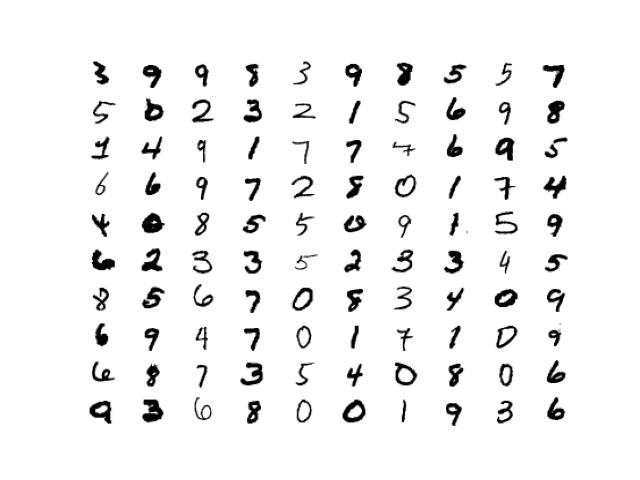 3 9 9 8 3 9 8 5 5 7
5 0 2 3 2 1 5 6 9 8
1 4 9 1 7 7 7 6 9 5
6 6 9 7 2 8 0 1 7 4
4 0 8 5 5 0 9 1 5 9
6 2 3 3 5 2 3 3 4 5
8 5 6 7 0 8 3 4 0 9
6 9 4 7 0 1 7 1 0 9
6 8 7 3 5 4 0 8 0 6
9 3 6 8 0 0 1 9 3 6